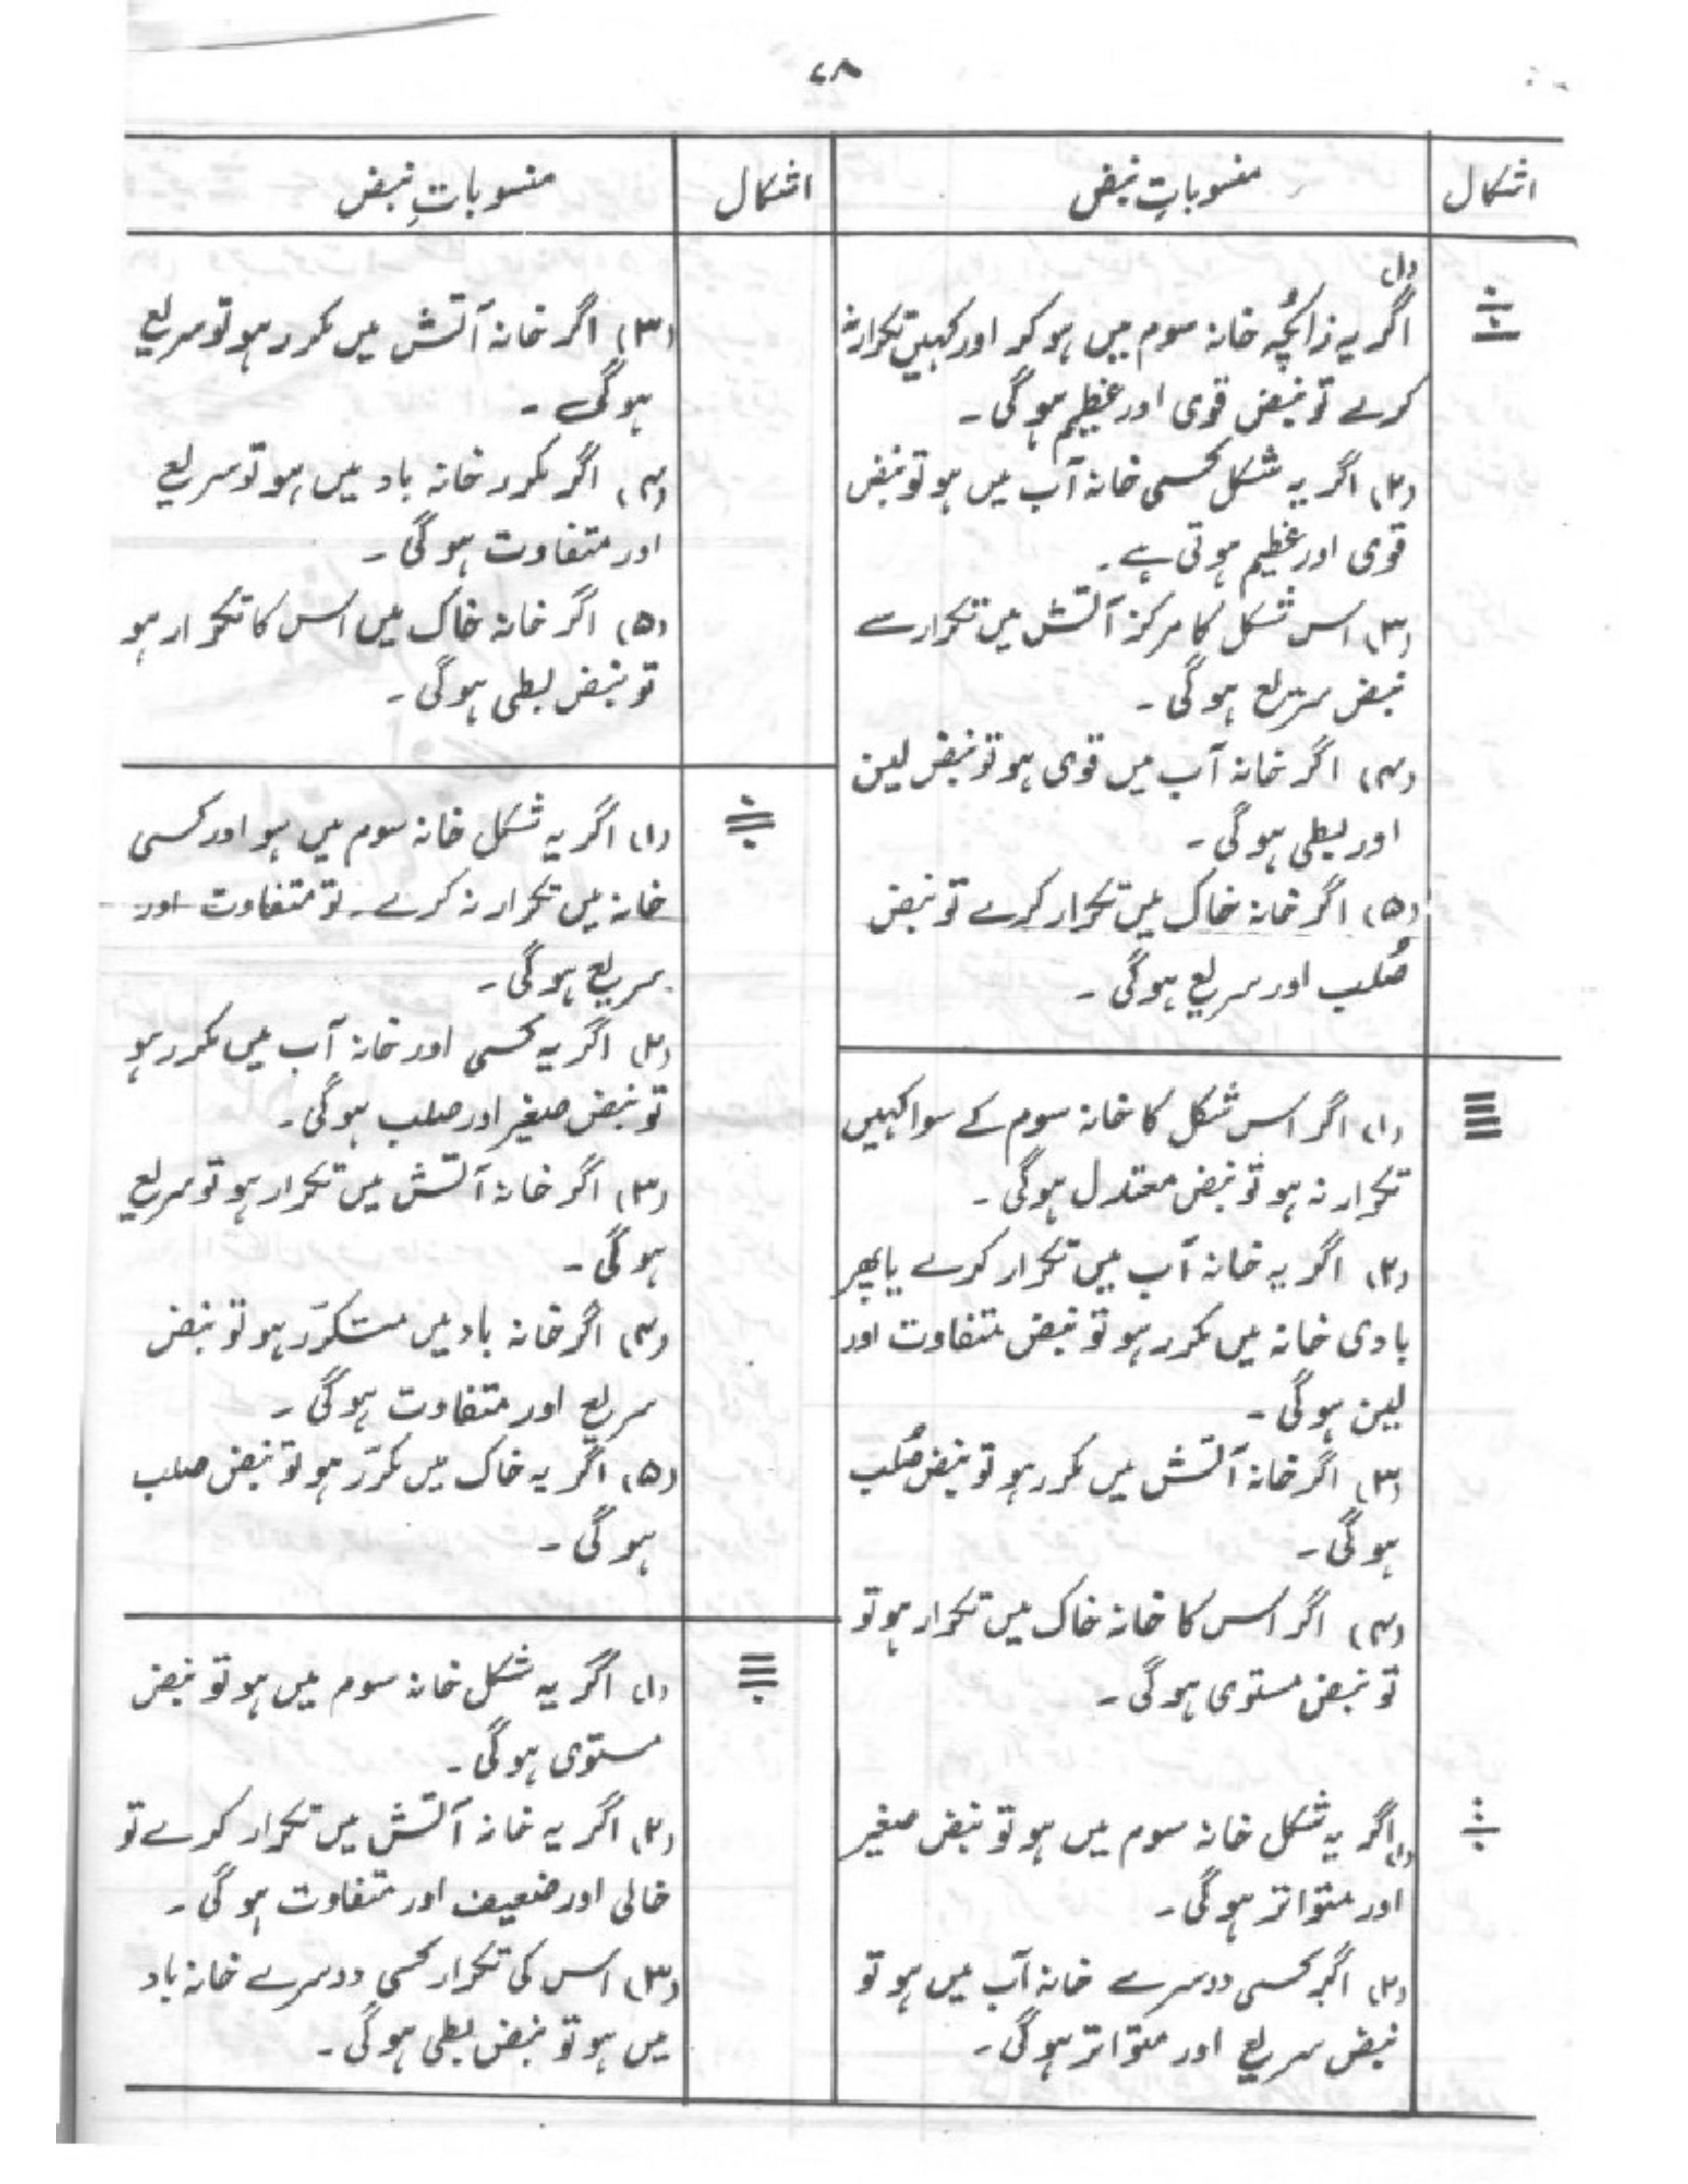 ۷۸
اشکال
منسوباتِ نبض
اشکال
منسوباتِ نبض
(۱)
اگر یہ زائچہ خانہ سوم میں ہو کر اور کہیں تکرار نہ
کرے تو نبض قوی اور عظیم ہوگی۔
(۲) اگر یہ شکل کسی خانہ آب میں ہو تو نبض
قوی اور عظیم ہوتی ہے۔
(۳) اس شکل کا مرکز آتش میں تکرار سے
نبض سریع ہوگی۔
(۴) اگر خانہ آب میں قوی ہو تو نبض لین
اور بطی ہوگی۔
(۵) اگر خانہ خاک میں تکرار کرے تو نبض
صُلب اور سریع ہوگی۔
(۱) اگر اس شکل کا خانہ سوم کے سوا کہیں
تکرار نہ ہو تو نبض معتدل ہوگی۔
(۲) اگر یہ خانہ آب میں تکرار کرے یا پھر
بادی خانہ میں مکرر ہو تو نبض متفاوت اور
لین ہوگی۔
(۳) اگر خانہ آتش میں مکرر ہو تو نبض صُلب
ہوگی۔
(۴) اگر اس کا خانہ خاک میں تکرار ہو تو
تو نبض مستوی ہوگی۔
(۱) اگر یہ شکل خانہ سوم میں ہو تو نبض صغیر
اور متواتر ہوگی۔
(۲) اگر کسی دوسرے خانہ آب میں ہو تو
نبض سریع اور متواتر ہوگی۔
(۳) اگر خانہ آتش میں مکرر ہو تو سریع
ہوگی۔
(۴) اگر مکرر خانہ باد میں ہو تو سریع
اور متفاوت ہوگی۔
(۵) اگر خانہ خاک میں اس کا تکرار ہو
تو نبض بطی ہوگی۔
(۱) اگر یہ شکل خانہ سوم میں ہو اور کسی
خانہ میں تکرار نہ کرے۔ تو متفاوت اور
سریع ہوگی۔
(۲) اگر یہ کسی اور خانہ آب میں مکرر ہو
تو نبض صغیر اور صلب ہوگی۔
(۳) اگر خانہ آتش میں تکرار ہو تو سریع
ہوگی۔
(۴) اگر خانہ باد میں متکرّر ہو تو نبض
سریع اور متفاوت ہوگی۔
(۵) اگر یہ خاک میں مکرّر ہو تو نبض صلب
ہوگی۔
(۱) اگر یہ شکل خانہ سوم میں ہو تو نبض
مستوی ہوگی۔
(۲) اگر یہ خانہ آتش میں تکرار کرے تو
خالی اور ضعیف اور متفاوت ہوگی۔
(۳) اس کی تکرار کسی دوسرے خانہ باد
میں ہو تو نبض بطی ہوگی۔